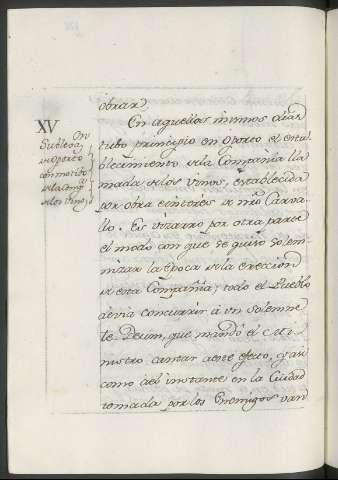 obrar.
XV
Sublevaon
en Oporto
con motivo
de la Comp.
de los Vinos
En aquellos mismos dias
tubo principio en Oporto el esta-
blecimiento de la Compañia lla
mada de los Vinos, establecida
por obra è interes de nro Carva-
llo. Es vizarro por otra parte
el modo con que se quiso solem-
nizar la epoca de la ereccion
de esta Compañia; todo el Pueblo
devia concurrir à un solemne
te Deum, que mandó el Mi-
nistro cantar a este efecto, y asi
como del instante en la Ciudad
tomada por los Enemigos van